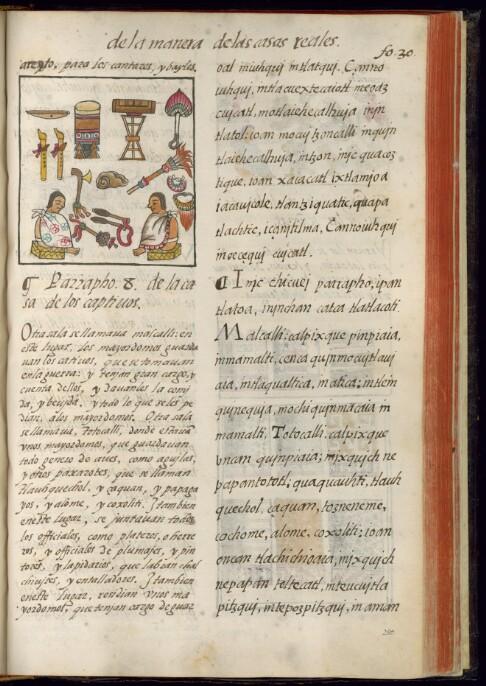 de la manera de las casas reales.
fo. 30.
areyto, para los cantares, y bayles.
¶ Parrapho. 8. de la ca
sa de los captiuos.
Otra sala se llamaua malcalli: en
este lugar, los mayordomos guarda
uan los catiuos, que se tomauan
en la guerra: y tenjan gran cargo, y
cuenta dellos, y dauanles la comj
da, y beujda, y todo lo que se les pe
dian, a los mayordomos. Otra sala
se llamaua, totocalli, donde estauan
vnos mayordomos, que guardauan
todo genero de aues, como agujlas,
y otros paxarotes, que se llaman
tlauhquechol, y çaquan, y papaga
yos, y alome, y coxoliti. Y tambien
en este lugar, se juntauan todos
los officiales, como plateros, o herre
ros, y officiales de plumajes, y pin
tores, y lapidarios, que labran chal
chiujtes, y entalladores. Y tambien
en este lugar, residian vnos ma
yordomos, que tenjan cargo de guar
oal iniuhquj intlatquj. Çan no
iuhquj, intla cuextecaiotl meoaz
cujcatl, motlaiehecalhuja injn
tlatol: ioan mocujtzoncalli inqujn
tlaiehecalhuja, intzon, injc quacoz
tique, ioan xaiacatl ixtlamjoa
iacaujcole, tlantziquatic, quapa
tlachtic, icanjtilma, Çan no iuhquj
in oc cequj cujcatl.
¶ Injc chicuei parrapho, ipan
tlatoa, injnchan catca tlatlacoti.
Malcalli: calpixque pinpiaia,
inmamalti, cenca qujnmocujtlauj
aia, intlaqualtica, matica: intlein
qujnequja, mochi qujnmacaia in
mamalti. Totocalli, calpixque
vncan qujnpiaia; injxqujch ne
papan tototl; quaquauhti, tlauh
quechol, çaquan, tozneneme,
cochome, alome, coxoliti; ioan
oncan tlachichioaia, injxqujch
nepapan toltecatl, inteucujtla
pitzquj, intepuzpitzquj, in aman